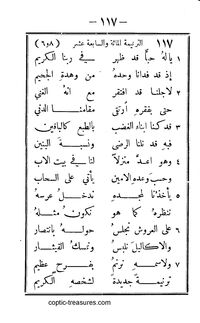 — ١١٧ —
١١٧ الترنيمة المائة والسابعة عشر (٦و٨)
١ ياله حبًا قد ظهر في ربنا الكريم
إذ قد فدانا وحده من وهدة الجحيم
٢ لاجلنا قد افتقر مع انه الغني
حتى بفقره ارتقى مقامنا الدني
٣ قد كنا ابناء الغضب بالطبع كالباقين
لكننا نلنا الرضى ونسبة البنين
٤ وهو اعد منزلا لنا في بيت الآب
وحسب وعده الامين
٥ يأخذنا لمجده ندخل عرسه
ننظره كما هو نكون مثله
٦ على العروش نجلس حوله بانتصار
والاكاليل نلبس ونمسك القيثار
٧ ولاسمه نرنم بفرح عظيم
ترنيمة جديدة لشخصه الكريم
coptic-treasures.com